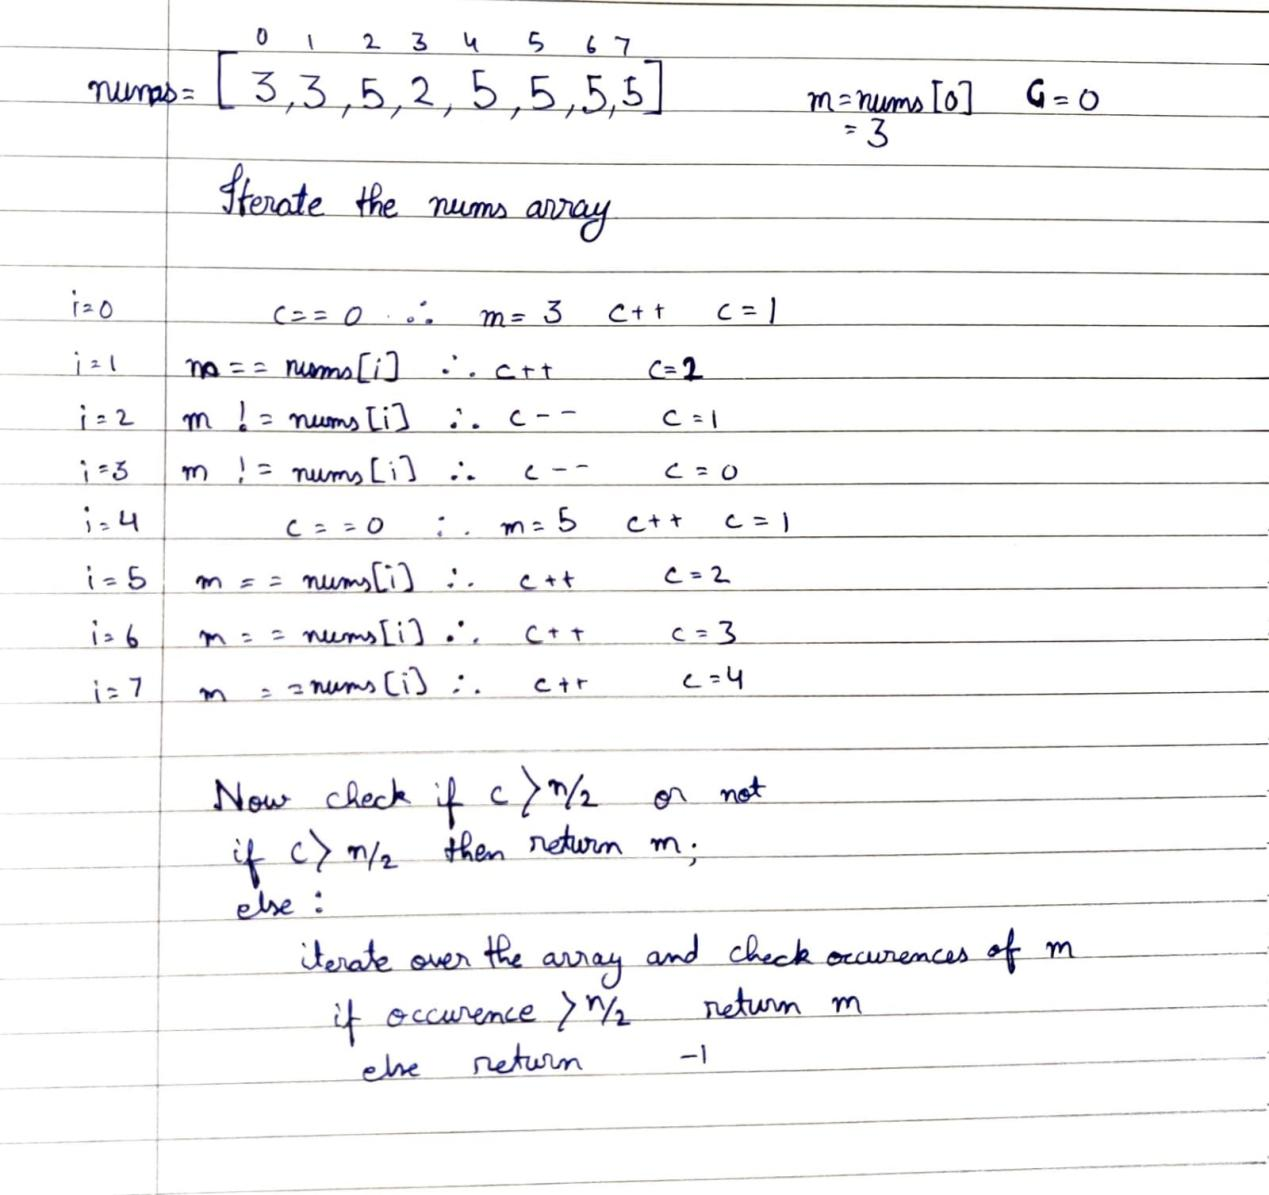 0 1 2 3 4 5 6 7
nums = [3,3,5,2,5,5,5,5] m=nums[0] C=0
= 3
Iterate the nums array
i=0 c==0 ∴ m=3 c++ c=1
i=1 m==nums[i] ∴ c++ c=2
i=2 m!=nums[i] ∴ c-- c=1
i=3 m!=nums[i] ∴ c-- c=0
i=4 c==0 ∴ m=5 c++ c=1
i=5 m==nums[i] ∴ c++ c=2
i=6 m==nums[i] ∴ c++ c=3
i=7 m==nums[i] ∴ c++ c=4
Now check if c>n/2 or not
if c>n/2 then return m;
else :
iterate over the array and check occurences of m
if occurence >n/2 return m
else return -1